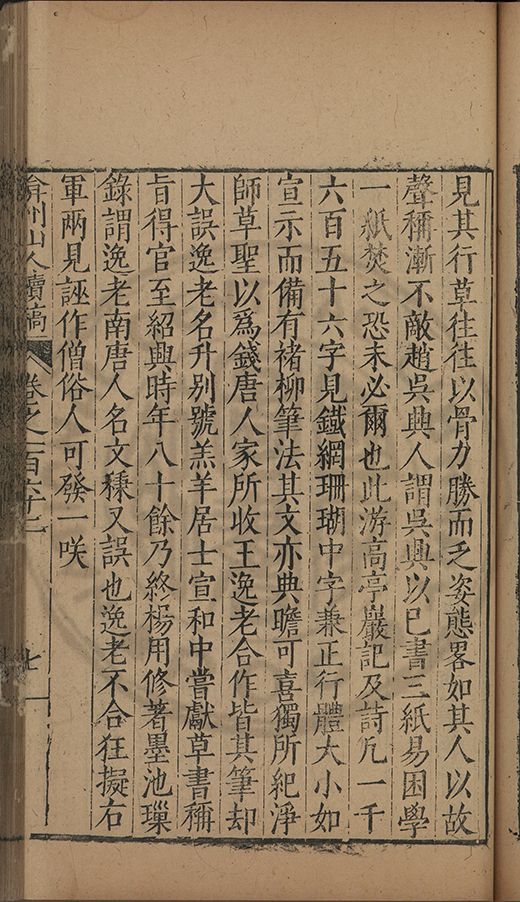 見其行草往往以骨力勝而乏姿態畧如其人以故
聲稱漸不敵趙吳興人謂吳興以已書三紙易困學
一紙焚之恐未必爾也此游高亭巖記及詩凡一千
六百五十六字見鐵網珊瑚中字兼正行體大小如
宣示而備有褚柳筆法其文亦典贍可喜獨所紀淨
師草聖以為錢唐人家所收王逸老合作皆其筆却
大誤逸老名升别號羔羊居士宣和中嘗獻草書稱
旨得官至紹興時年八十餘乃終楊用修著墨池璅
錄謂逸老南唐人名文秉又誤也逸老不合狂擬右
軍兩見誣作僧俗人可發一咲
弇州山人續稿 卷之一百六十二 七